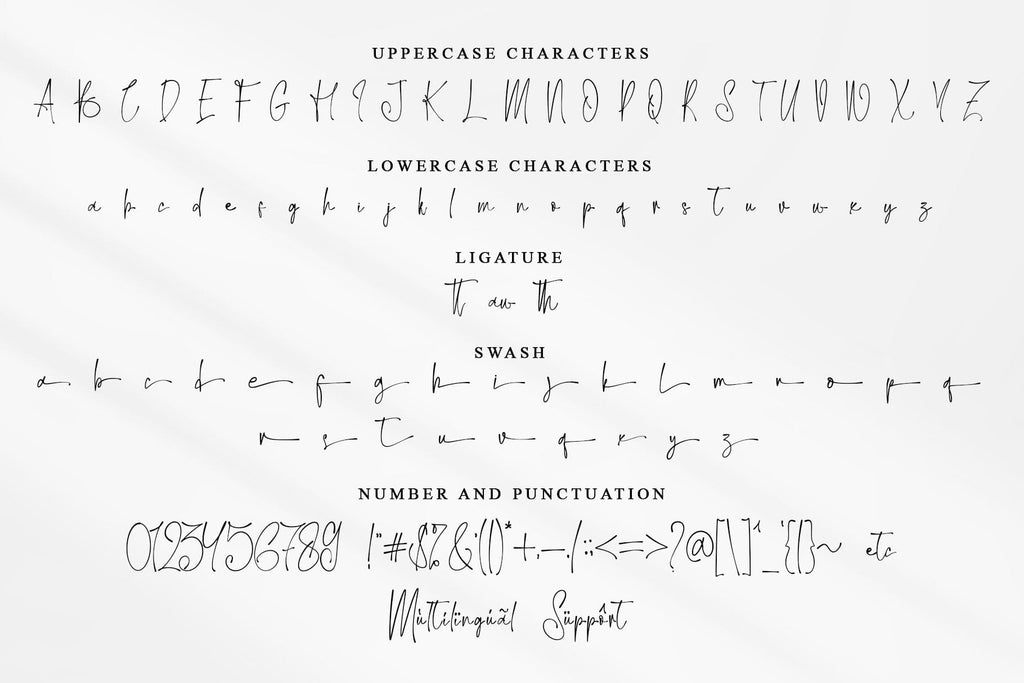 UPPERCASE CHARACTERS
A B C D E F G H I J K L M N O P Q R S T U V W X Y Z
LOWERCASE CHARACTERS
a b c d e f g h i j k l m n o p q r s t u v w x y z
LIGATURE
tt aw th
SWASH
a b c d e f g h i j k l m n o p q
r s t u v q x y z
NUMBER AND PUNCTUATION
0123456789 !"#$%&'()*+,-./:;<=>?@[\]^_`{|}~ etc
Mùltilïngúãl Süppôrt